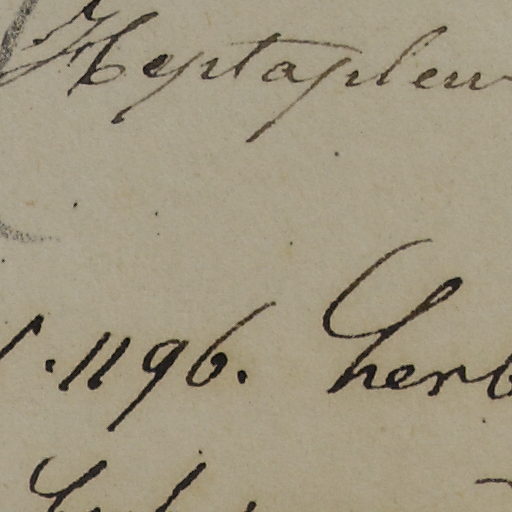 Heptapleu
1196. herb